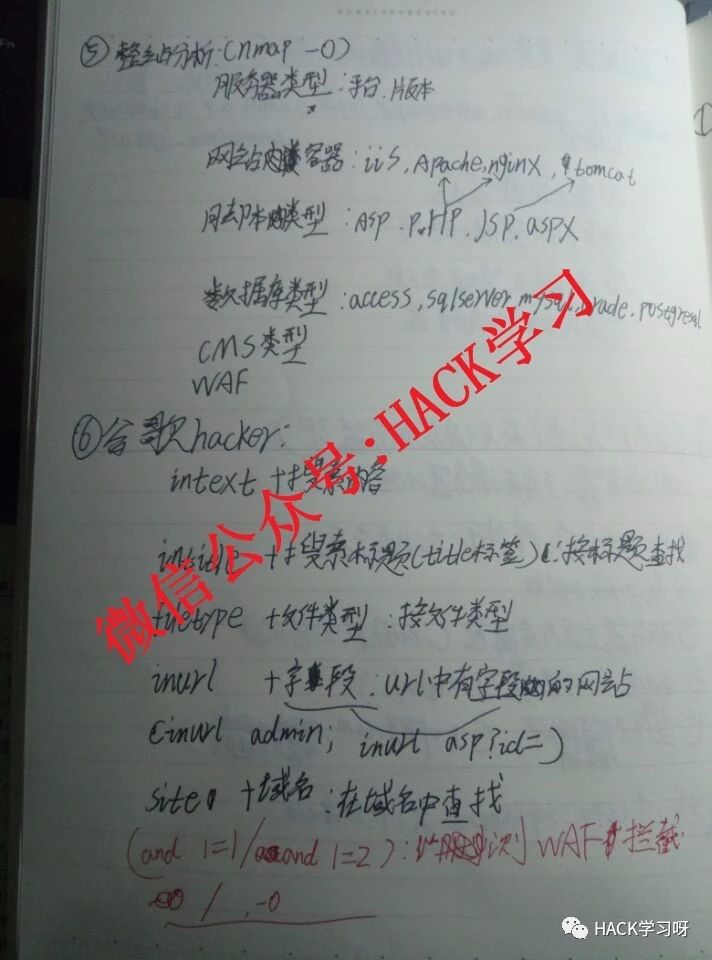 ⑤ 整站分析:(nmap -O)
服务器类型:平台.版本
网站容器:iis, Apache, nginx, tomcat
脚本类型:Asp. PHP. jsp. aspx
数据库类型:access, sqlserver, mysql, postgresql
CMS类型
WAF
⑥谷歌hacker:
intext +搜索内容
+搜索标题(title标签):按标题查找
filetype +文件类型:按文件类型
inurl +字段:url中有字段的网站
(inurl admin; inurl asp?id=)
site +域名:在域名中查找
(and 1=1/and 1=2):测WAF拦截
/ , -0
微信公众号:HACK学习
HACK学习呀